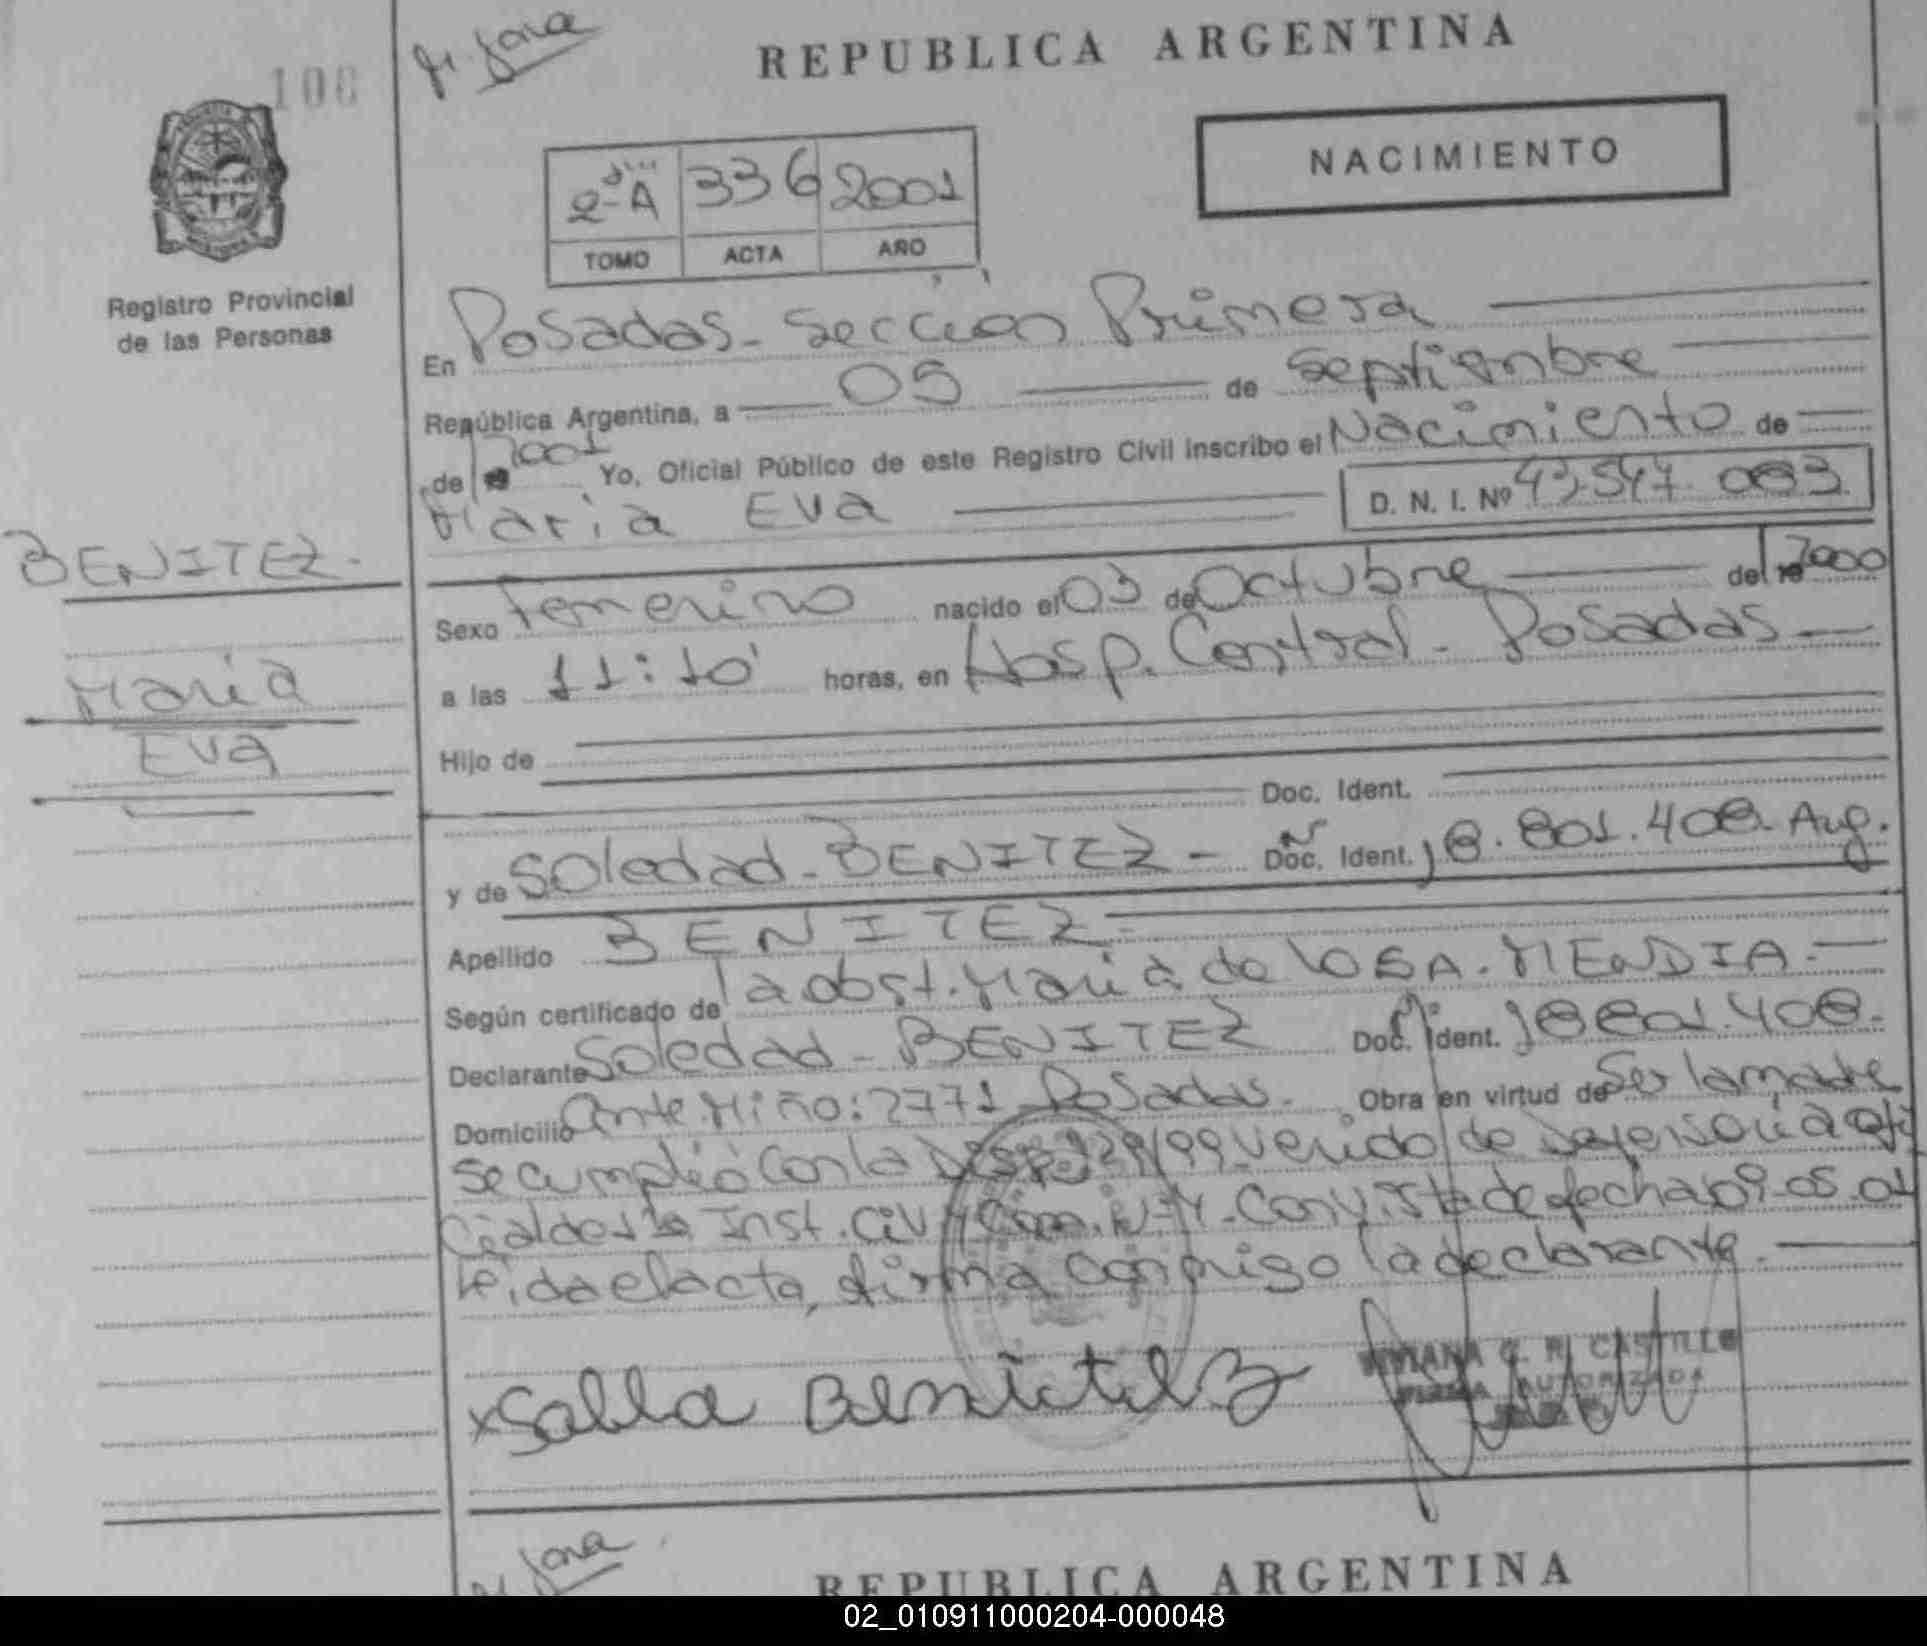 108
REPUBLICA ARGENTINA
NACIMIENTO
2º A 336 2001
TOMO ACTA AÑO
Registro Provincial
de las Personas
En Posadas - Sección Primera
República Argentina, a 05 de Septiembre
de 2001 Yo, Oficial Público de este Registro Civil inscribo el Nacimiento de
María Eva D. N. I. Nº 43.547.083
BENITEZ
María
Eva
Sexo Femenino nacido el 03 de Octubre de 2000
a las 11:10' horas, en Hosp. Central - Posadas
Hijo de
Doc. Ident.
y de Soledad - BENITEZ - Doc. Ident. 18.801.408 Arg.
Apellido BENITEZ
Según certificado de la obst. María de los A. MENDIA.
Declarante Soledad - BENITEZ Doc. Ident. 18801.408.
Domicilio Ante Miño: 2771 Posadas. Obra en virtud de Ser la madre
se cumplió con la Disp. 129/99 venido de Defensoría Ofi
cial de 1ª Inst. Civ y Com. Nº 4 - Con Vista de fecha 09-05-01
leida el acta, firma conmigo la declarante.
x Benitez
VIVIANA G. R. CASTILLO
FIRMA AUTORIZADA
REPUBLICA ARGENTINA
02_010911000204-000048